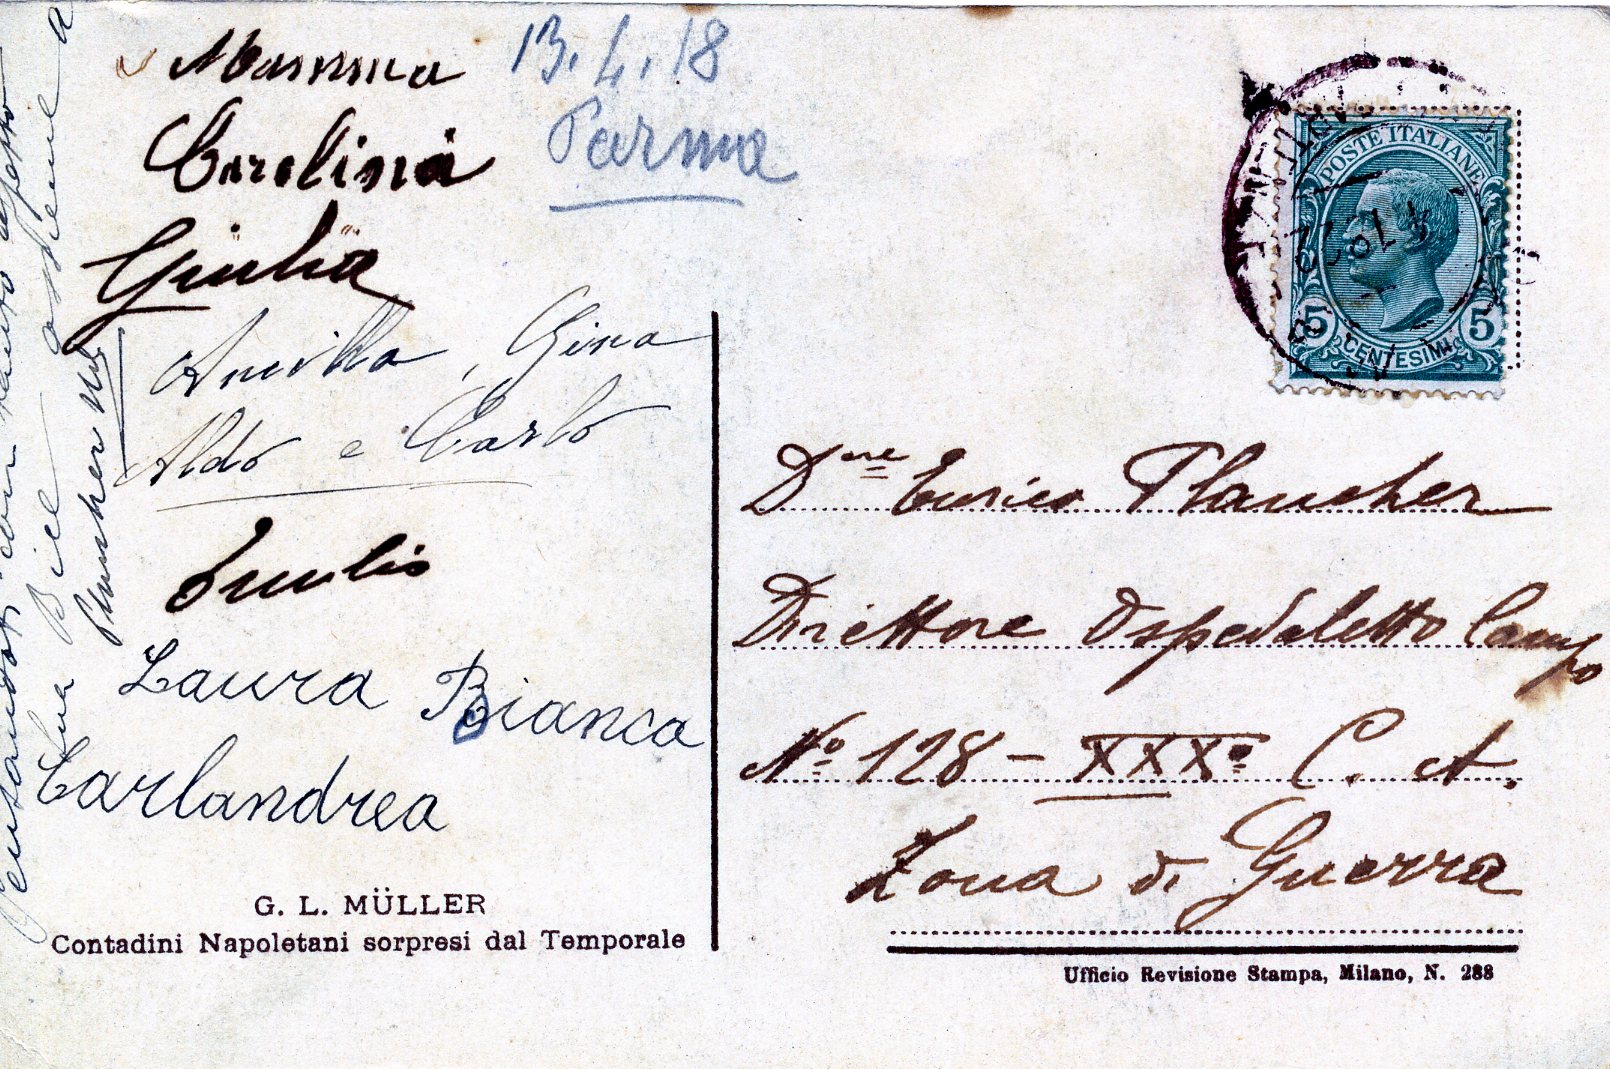 Mamma
Carolina
Giulia
13.4.18
Parma
Ancilla, Gina
Aldo e Carlo
Emilio
Laura Bianca
Carlandrea
Pensandoti con
tua Bice
assieme a
Plancher
G. L. MÜLLER
Contadini Napoletani sorpresi dal Temporale
POSTE ITALIANE
5 5
CENTESIMI
Dre Enrico Plancher
Direttore Ospedaletto Campo
No. 128 - XXXo C. A.
Zona di Guerra
Ufficio Revisione Stampa, Milano, N. 288